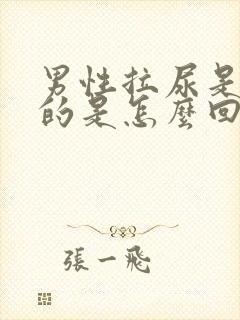 男性拉尿是
的是怎麼回
張一飛